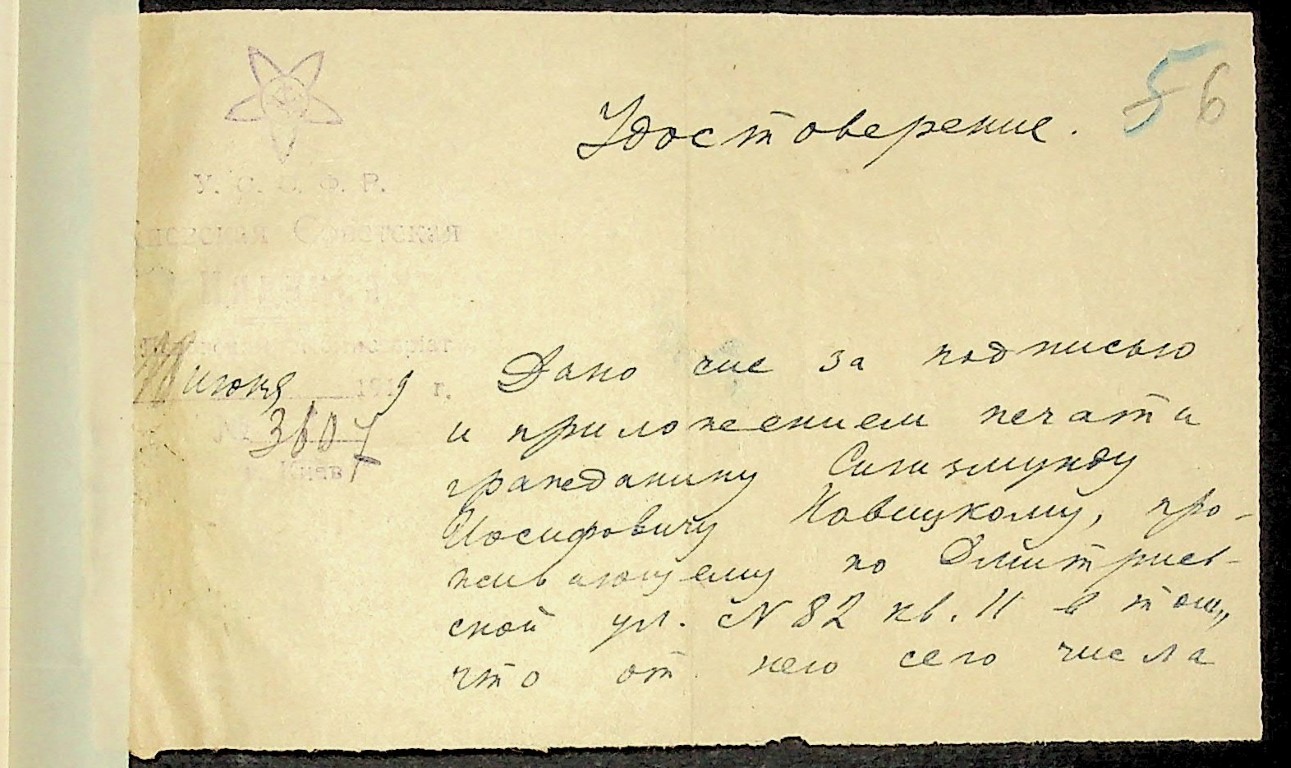 56
Удостоверение.
У. С. С. Ф. Р.
Киевская Советская
июня 1919 г.
№ 3607
г. Киев
Дано сие за подписью
и приложением печати
гражданину Сигизмунду
Иосифовичу Новицкому, про-
живающему по Дмитриев-
ской ул. N 82 кв. 11 в том,
что от него сего числа